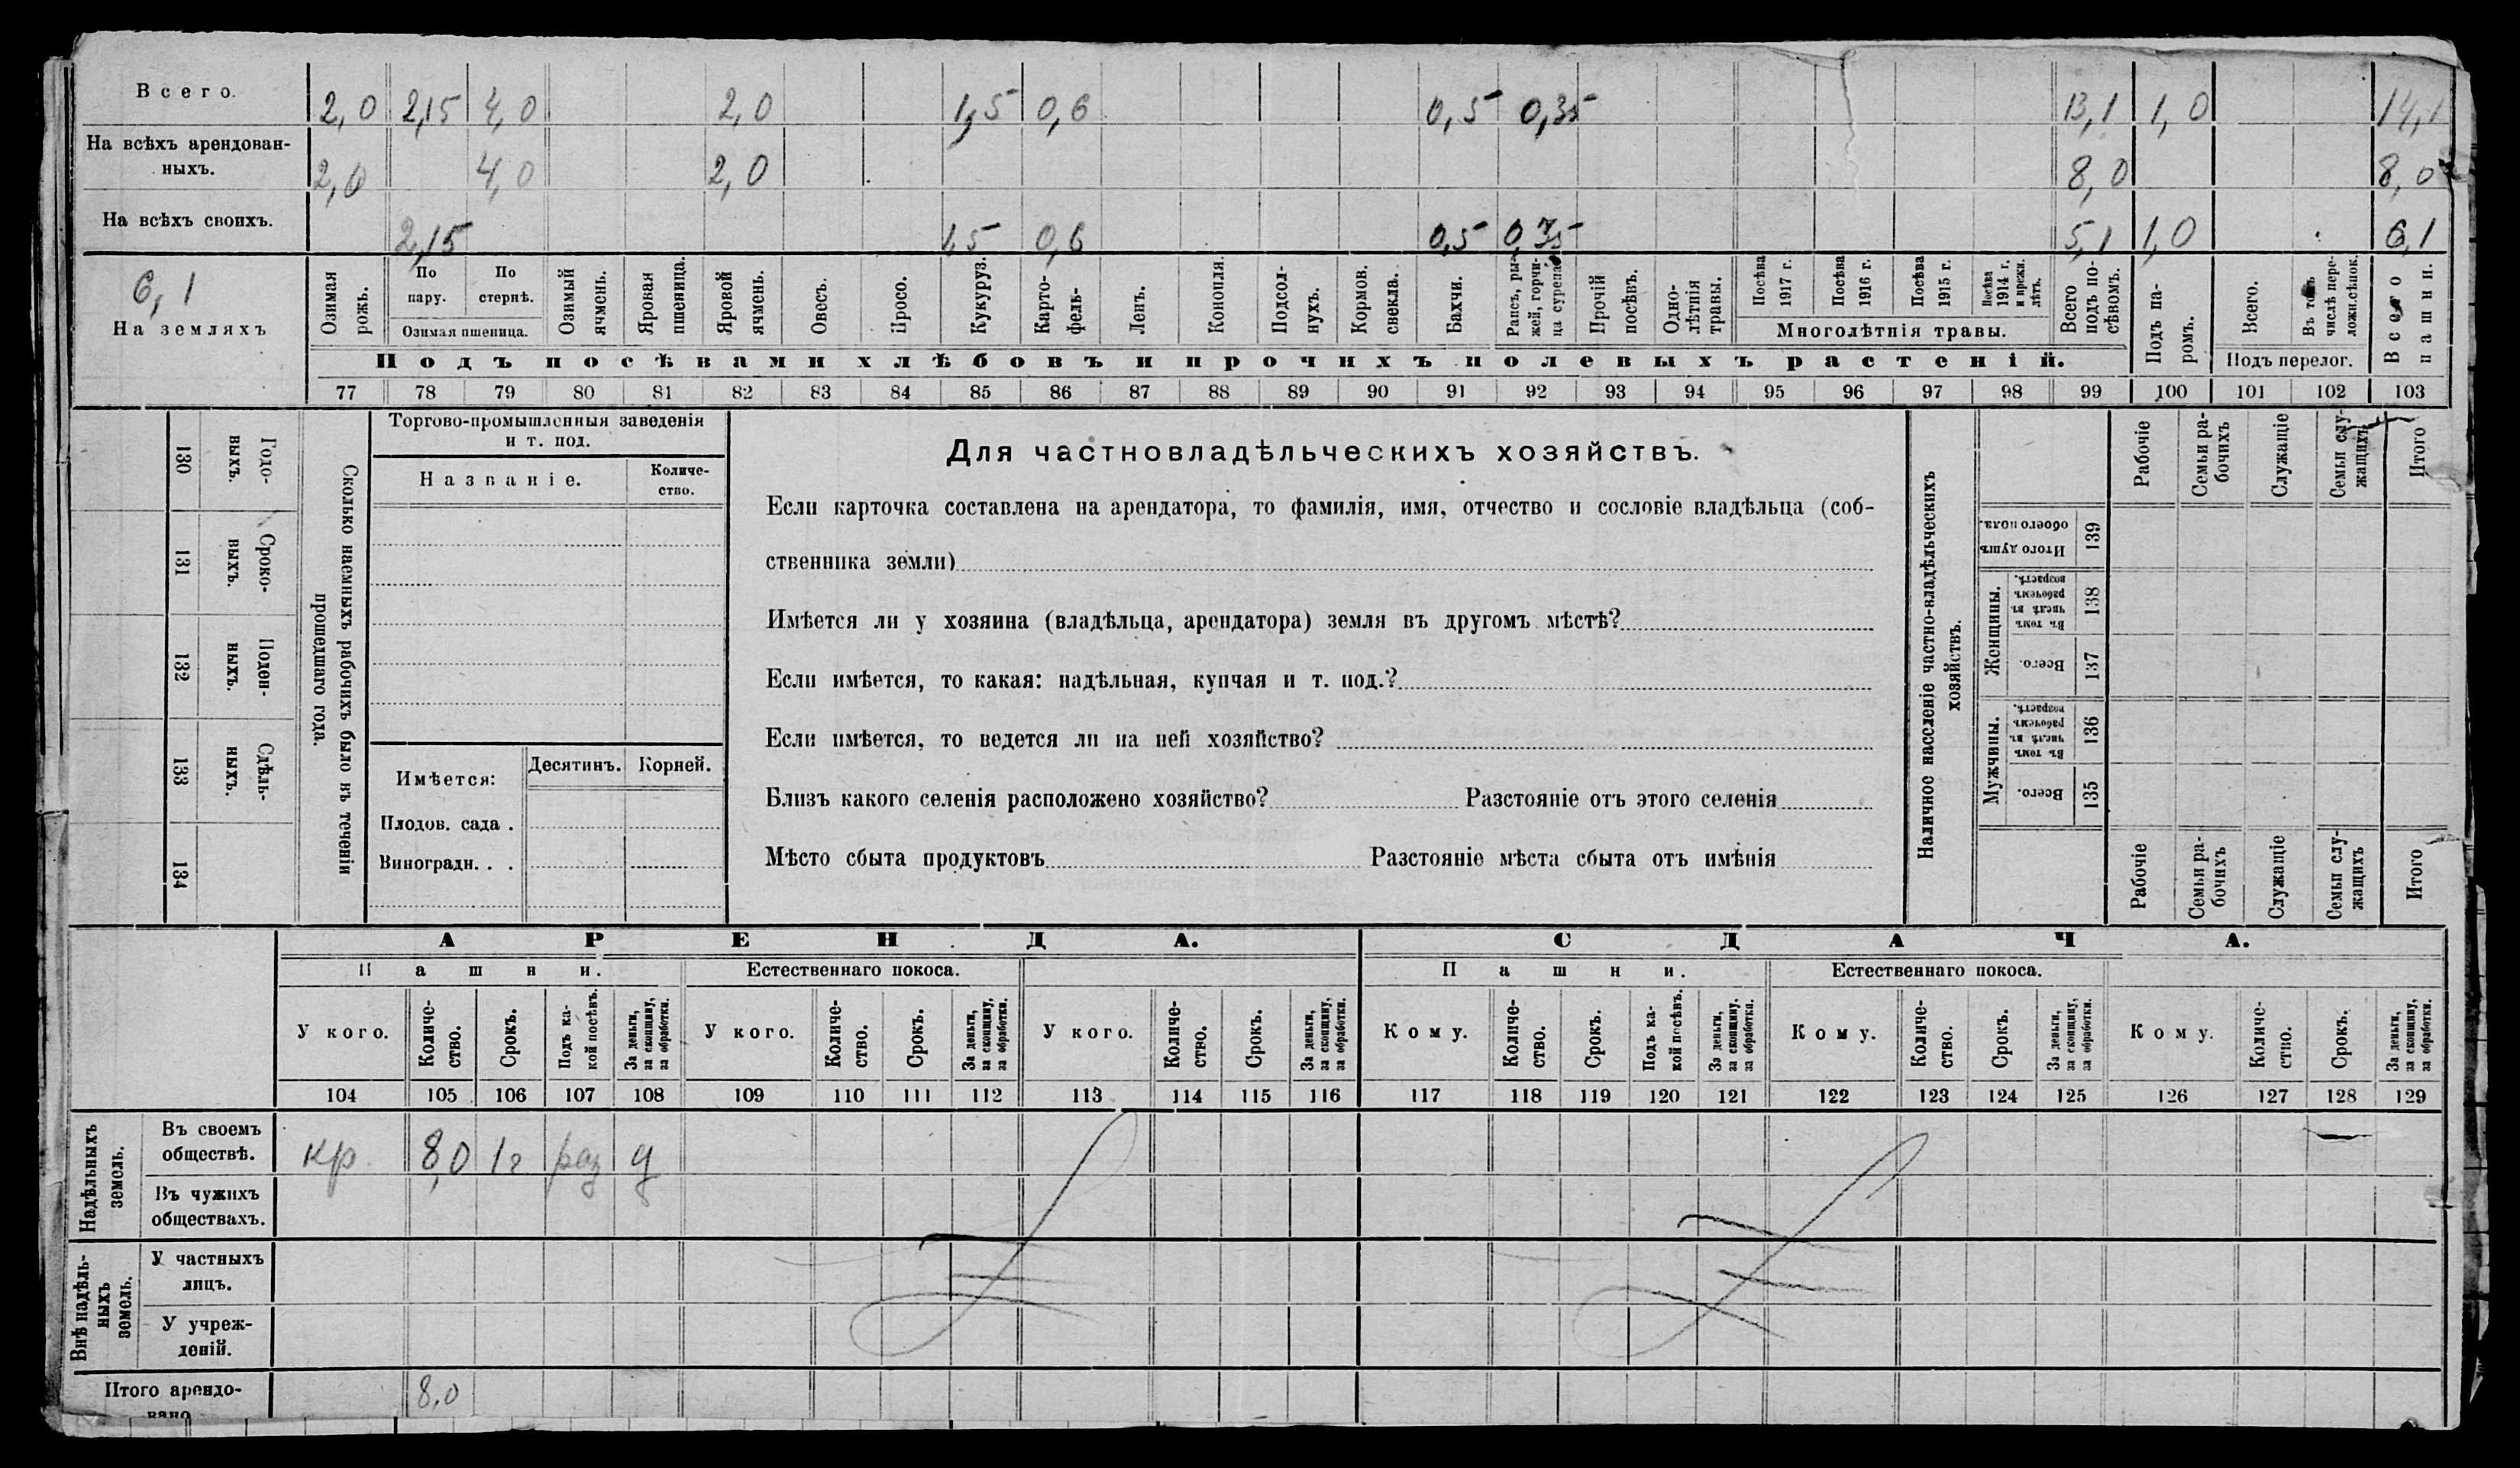 Всего. 2,0 2,15 4,0 2,0 1,5 0,6 0,5 0,35 13,1 1,0 14,1
На всѣхъ арендован-
ныхъ. 2,0 4,0 2,0 8,0 8,0
На всѣхъ своихъ. 2,15 1,5 0,6 0,5 0,35 5,1 1,0 6,1
6,1
На земляхъ
Озимая рожь.
По пару.
По стернѣ.
Озимая пшеница.
Озимый ячмень.
Яровая пшеница.
Яровой ячмень.
Овесъ.
Просо.
Кукуруз.
Карто-
фель.
Ленъ.
Конопля.
Подсол-
нухъ.
Кормов. свекла.
Бахчи.
Рапсъ, ры-
жей, горчи-
ца сурепа
Прочій посѣвъ.
Одно-
лѣтнія травы.
Посѣва 1917 г.
Посѣва 1916 г.
Посѣва 1915 г.
Посѣва 1914 г. и прежн. лѣтъ.
Многолѣтнія травы.
Всего подъ по-
сѣвомъ.
Подъ па-
ромъ.
Всего.
Въ томъ числѣ пере-
лож.сѣнок.
Подъ перелог.
Всего пашни.
Подъ посѣвами хлѣбовъ и прочихъ полевыхъ растеній.
77 78 79 80 81 82 83 84 85 86 87 88 89 90 91 92 93 94 95 96 97 98 99 100 101 102 103
130 Годо-
выхъ.
131 Сроко-
выхъ.
132 Поден-
ныхъ.
133 Сдѣль-
ныхъ.
134
Сколько наемныхъ рабочихъ было въ теченіи
прошедшаго года.
Торгово-промышленныя заведенія
и т. под.
Названіе.
Количе-
ство.
Имѣется: Десятинъ. Корней.
Плодов. сада .
Виноградн. . .
Для частновладѣльческихъ хозяйствъ.
Если карточка составлена на арендатора, то фамилія, имя, отчество и сословіе владѣльца (соб-
ственника земли)
Имѣется ли у хозяина (владѣльца, арендатора) земля въ другомъ мѣстѣ?
Если имѣется, то какая: надѣльная, купчая и т. под.?
Если имѣется, то ведется ли на ней хозяйство?
Близъ какого селенія расположено хозяйство? Разстояніе отъ этого селенія
Мѣсто сбыта продуктовъ Разстояніе мѣста сбыта отъ имѣнія
Наличное населеніе частно-владѣльческихъ
хозяйствъ.
Рабочіе
Семьи ра-
бочихъ
Служащіе
Семьи слу-
жащихъ
Итого
Итого душъ обоего пола. 139
Женщины.
Въ томъ числѣ въ рабочемъ возрастѣ. 138
Всего. 137
Мужчины.
Въ томъ числѣ въ рабочемъ возрастѣ. 136
Всего. 135
Рабочіе
Семьи ра-
бочихъ
Служащіе
Семьи слу-
жащихъ
Итого
АРЕНДА. СДАЧА.
Пашни. Естественнаго покоса. Пашни. Естественнаго покоса.
У кого.
Количе-
ство.
Срокъ.
Подъ ка-
кой посѣвъ.
За деньги, за скопщину, за обработки.
У кого.
Количе-
ство.
Срокъ.
За деньги, за скопщину, за обработки.
У кого.
Количе-
ство.
Срокъ.
За деньги, за скопщину, за обработки.
Кому.
Количе-
ство.
Срокъ.
Подъ ка-
кой посѣвъ.
За деньги, за скопщину, за обработки.
Кому.
Количе-
ство.
Срокъ.
За деньги, за скопщину, за обработки.
Кому.
Количе-
ство.
Срокъ.
За деньги, за скопщину, за обработки.
104 105 106 107 108 109 110 111 112 113 114 115 116 117 118 119 120 121 122 123 124 125 126 127 128 129
Надѣльныхъ
земель.
Въ своемъ
обществѣ. кр 8,0 1г раз д
Въ чужихъ
обществахъ.
Внѣ надѣль-
ныхъ
земель.
У частныхъ
лицъ.
У учреж-
деній.
Итого арендо-
вано 8,0